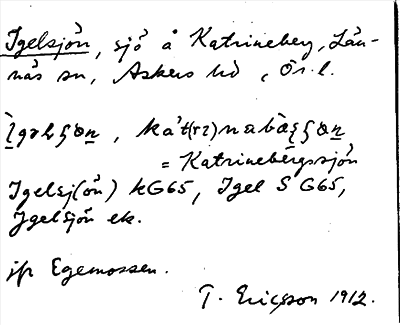 Igelsjön, sjö å Katrineberg, Län-
näs sn, Askers hd, Ör. l.
= Katrinebergssjön
Igelsj(ön) kG65, Igel S G65,
Igelsjön ek.
jfr Egemossen.
T. Ericsson 1912.